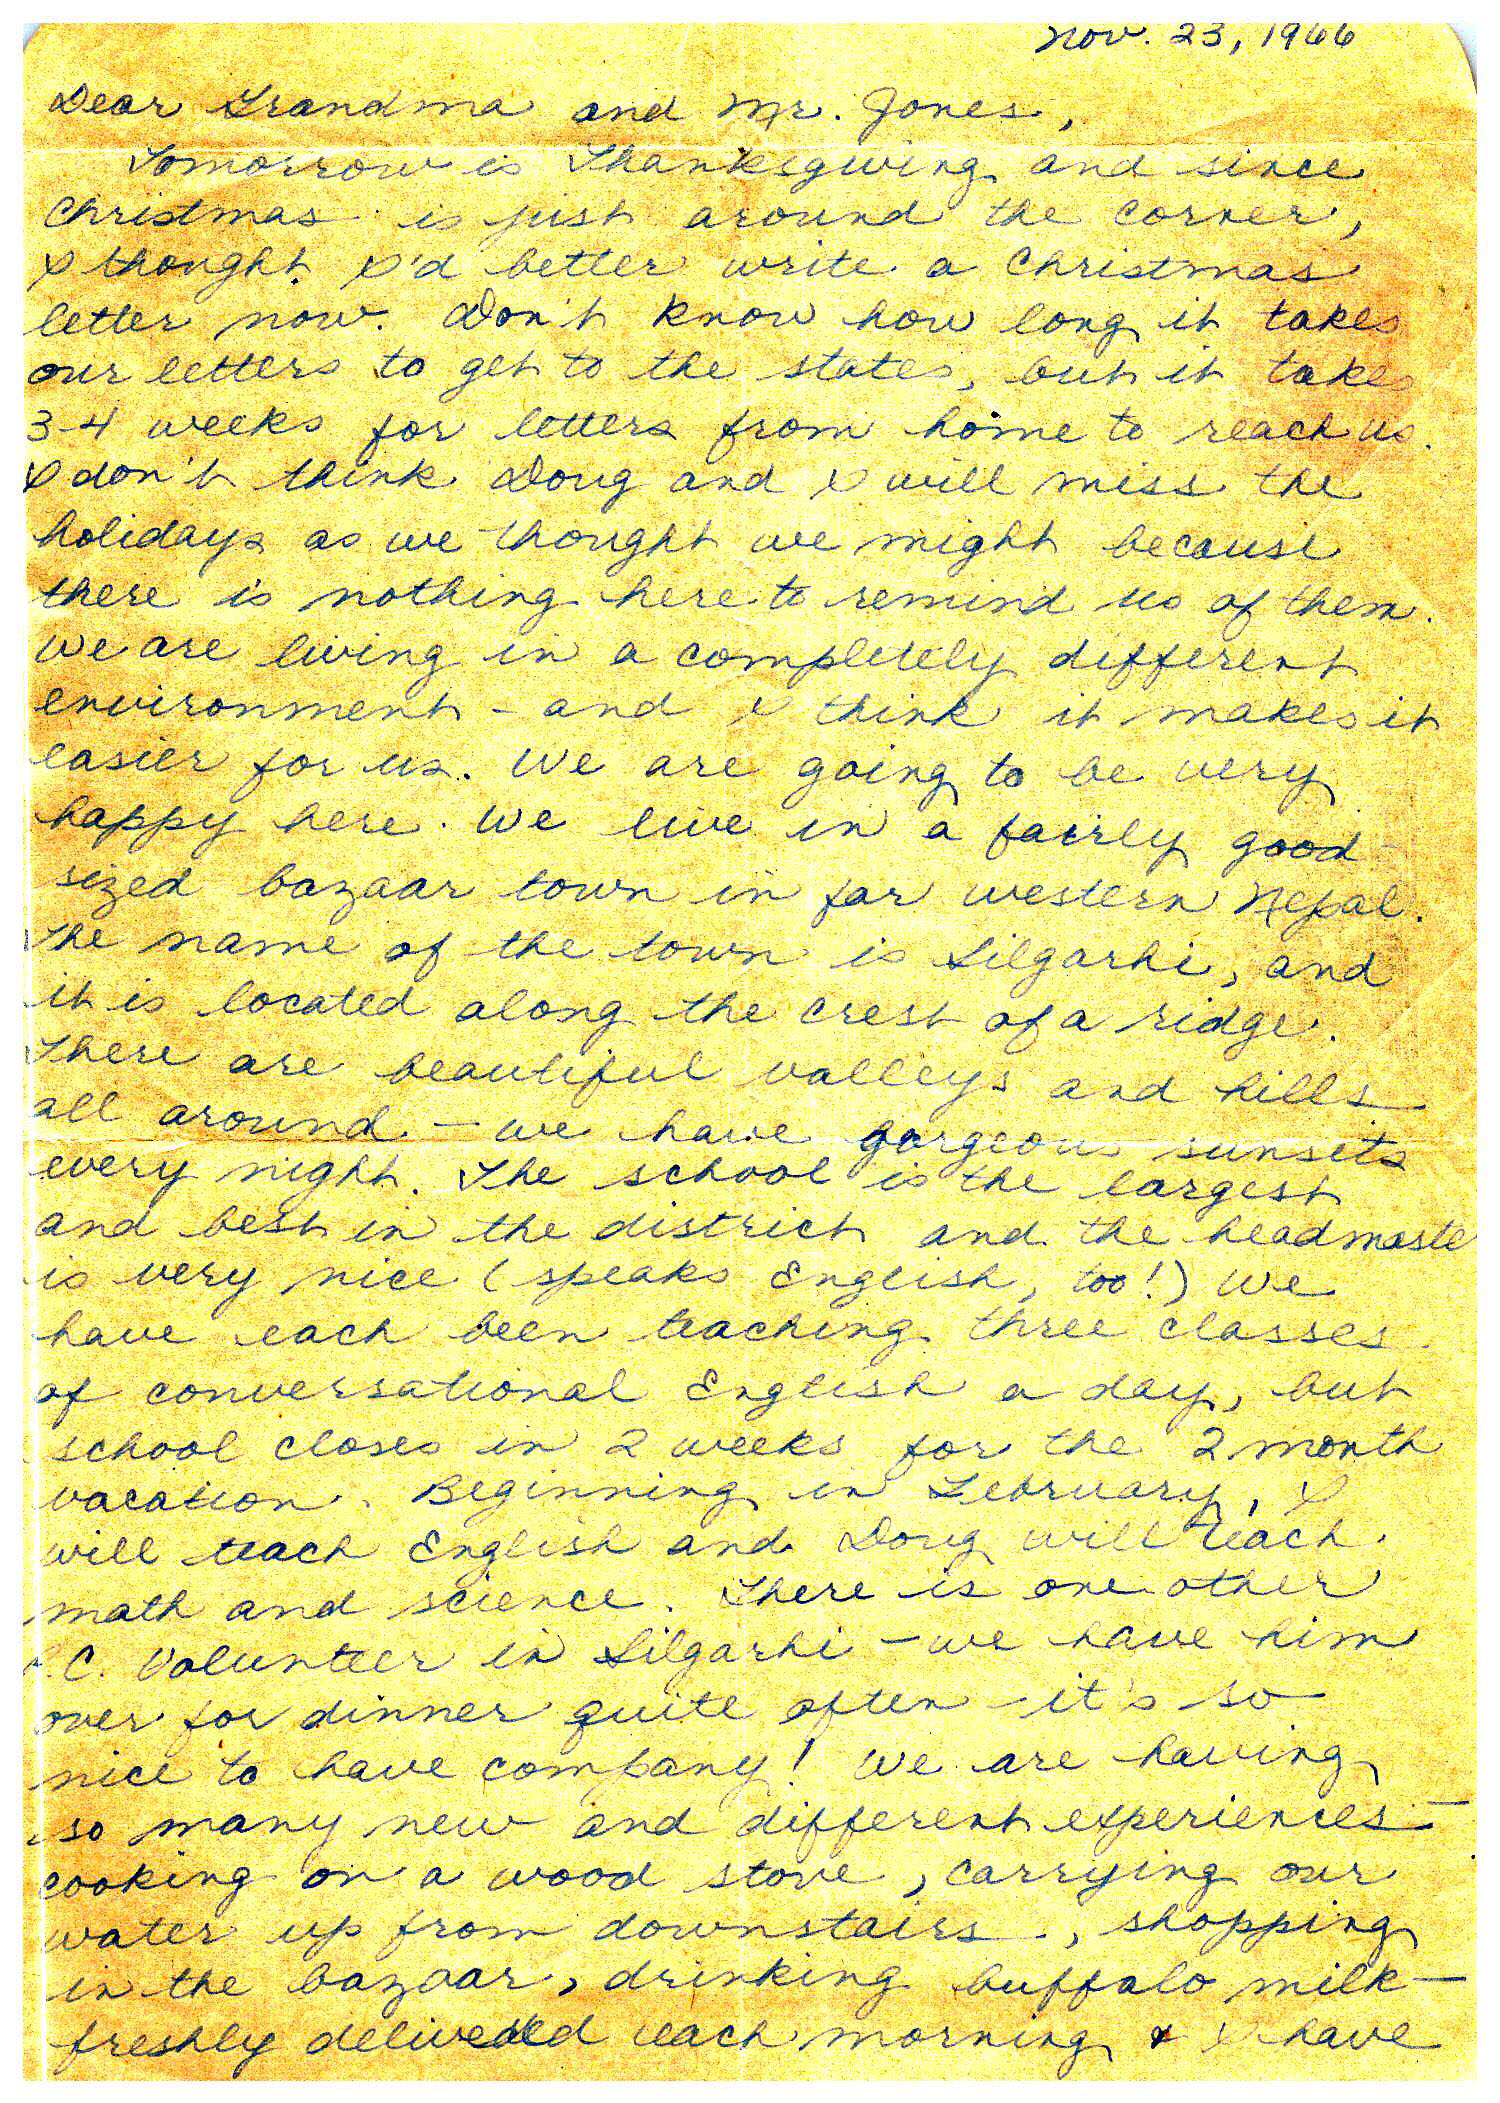 Nov. 23, 1966
Dear Grandma and Mr. Jones,
Tomorrow is Thanksgiving and since
Christmas is just around the corner,
I thought I'd better write a Christmas
letter now. Don't know how long it takes
our letters to get to the states, but it takes
3-4 weeks for letters from home to reach us.
I don't think Doug and I will miss the
holidays as we thought we might because
there is nothing here to remind us of them.
We are living in a completely different
environment - and I think it makes it
easier for us. We are going to be very
happy here. We live in a fairly good-
sized bazaar town in far western Nepal.
The name of the town is Silgarhi, and
it is located along the crest of a ridge.
There are beautiful valleys and hills
all around - we have gorgeous sunsets
every night. The school is the largest
and best in the district and the headmaste
is very nice (speaks English, too!) We
have each been teaching three classes
of conversational English a day, but
school closes in 2 weeks for the 2 month
vacation. Beginning in February, I
will teach English and Doug will teach
math and science. There is one other
P.C. Volunteer in Silgarhi - we have him
over for dinner quite often - it's so
nice to have company! We are having
so many new and different experiences -
cooking on a wood stove, carrying our
water up from downstairs, shopping
in the bazaar, drinking buffalo milk -
freshly delivered each morning & I have